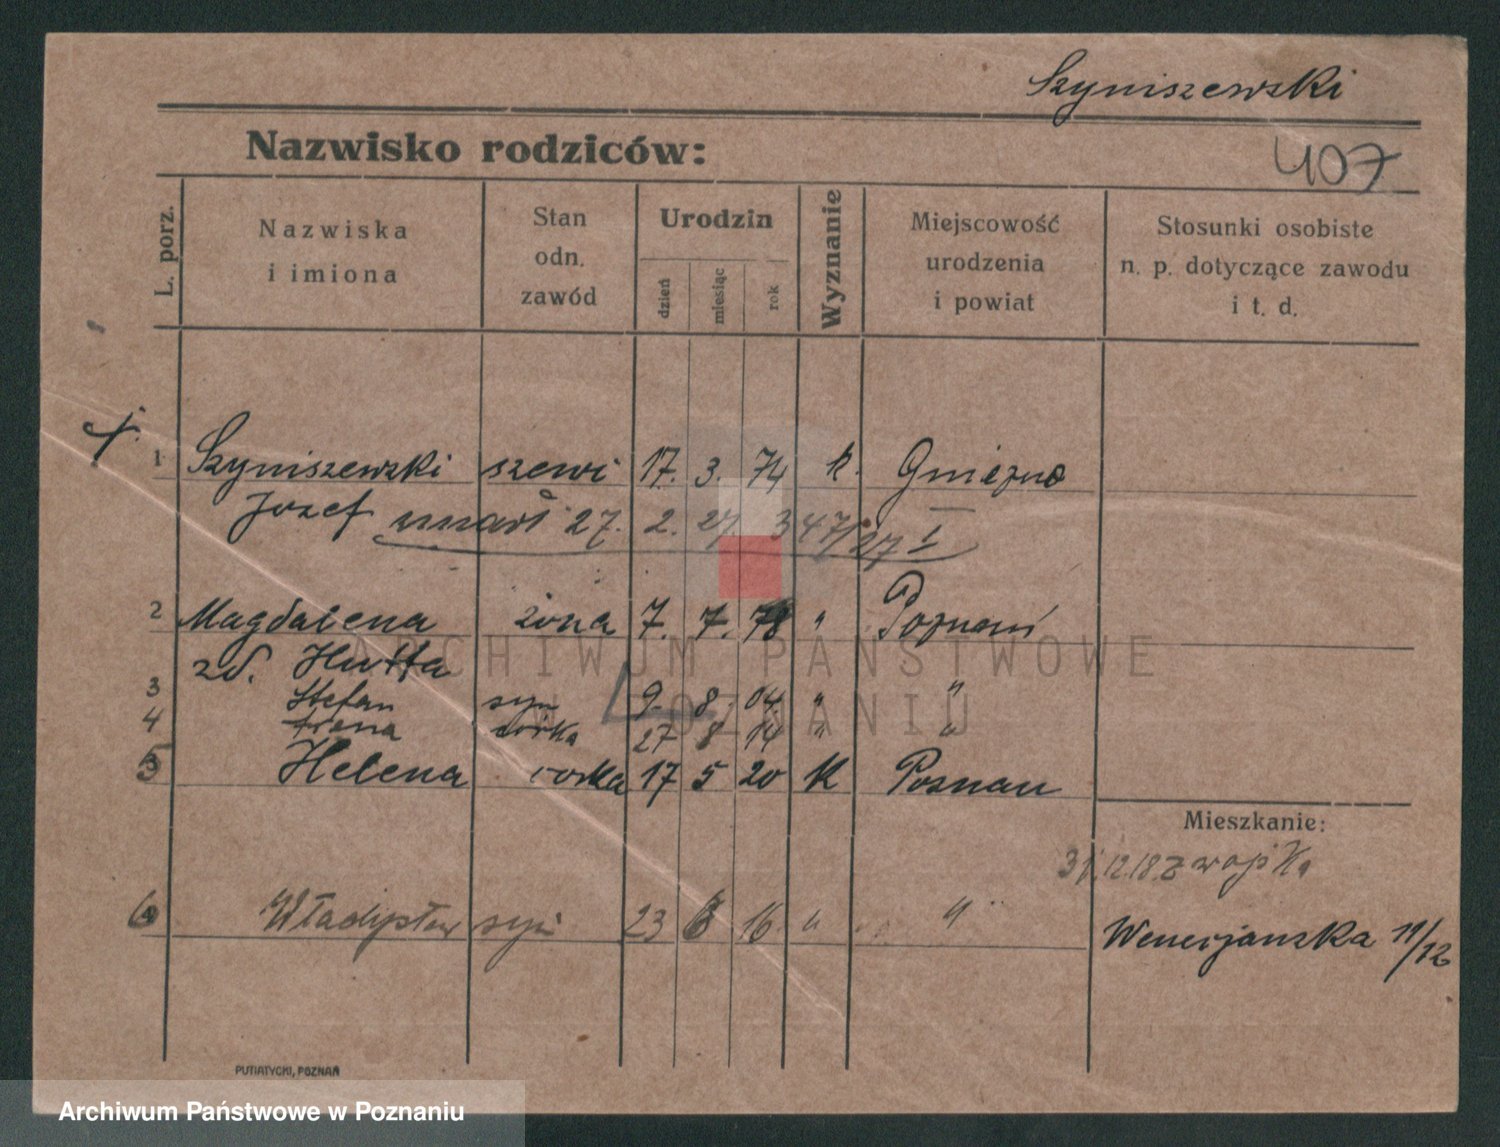 Szyniszewski
Nazwisko rodziców:
407
L. porz.
Nazwiska
i imiona
Stan
odn.
zawód
Urodzin
dzień
miesiąc
rok
Wyznanie
Miejscowość
urodzenia
i powiat
Stosunki osobiste
n. p. dotyczące zawodu
i t. d.
1 Szyniszewski szewc 17. 3. 74 k. Gniezno
Józef umarł 27. 2. 27. 347/27 I
2 Magdalena żona 7. 7. 78 " Poznań
zd. Hutta
3 Stefan syn 9. 8. 04. " "
4 Irena córka 27 8 14 " "
5 Helena córka 17 5 20 k Poznań
Mieszkanie:
31.12.18
6 Władysław syn 23 6 16 " "
Wenecjanska 11/12
ARCHIWUM PAŃSTWOWE
W POZNANIU
PUTIATYCKI, POZNAŃ
Archiwum Państwowe w Poznaniu